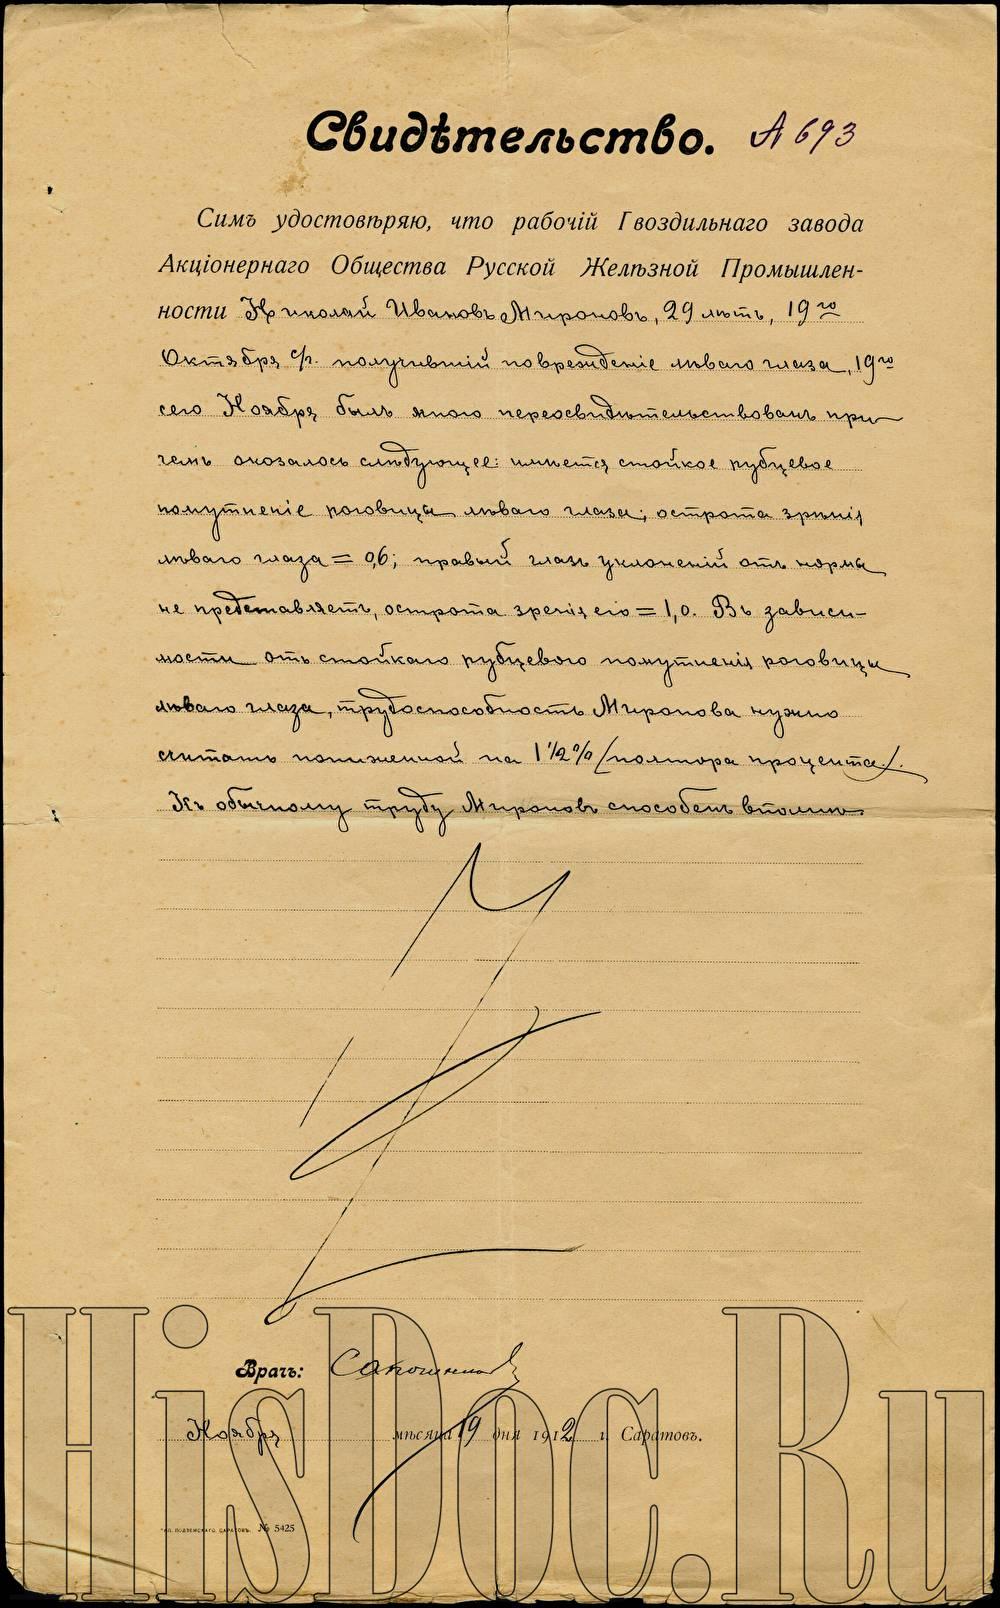 Свидѣтельство. А 693
Симъ удостовѣряю, что рабочій Гвоздильнаго завода
Акціонернаго Общества Русской Желѣзной Промышлен-
ности Николай Ивановъ Мироновъ, 29 лѣтъ, 19го
Октября с/г. получившій поврежденіе лѣваго глаза, 19го
сего Ноября былъ мною переосвидѣтельствованъ при
чемъ оказалось слѣдующее: имѣется стойкое рубцевое
помутненіе роговицы лѣваго глаза; острота зрѣнія
лѣваго глаза = 0,6; правый глазъ уклоненій отъ нормы
не представляетъ, острота зренія его = 1,0. Въ зависи-
мости отъ стойкаго рубцеваго помутненія роговицы
лѣваго глаза, трудоспособность Миронова нужно
считать пониженной на 1 1/2 % (полтора процента).
Къ обычному труду Мироновъ способенъ вполнѣ.
Врачъ:
Ноября мѣсяца 19 дня 1912 г. Саратовъ.
Тип. Подземскаго, Саратовъ. № 5425
HisDoc.Ru